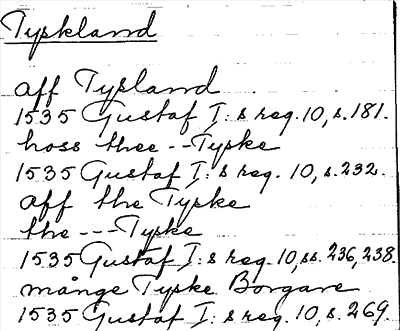 Tyskland
aff Tysland
1535 Gustaf I:s reg. 10, s. 181.
hoss thee -- Tyske
1535 Gustaf I:s reg. 10, s. 232.
aff the Tyske
the --- Tyske
1535 Gustaf I:s reg. 10, ss. 236, 238.
månge Tyske Borgare
1535 Gustaf I:s reg. 10, s. 269.